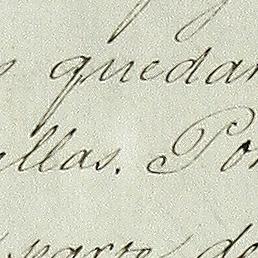 quedar
llas. Por
parte de